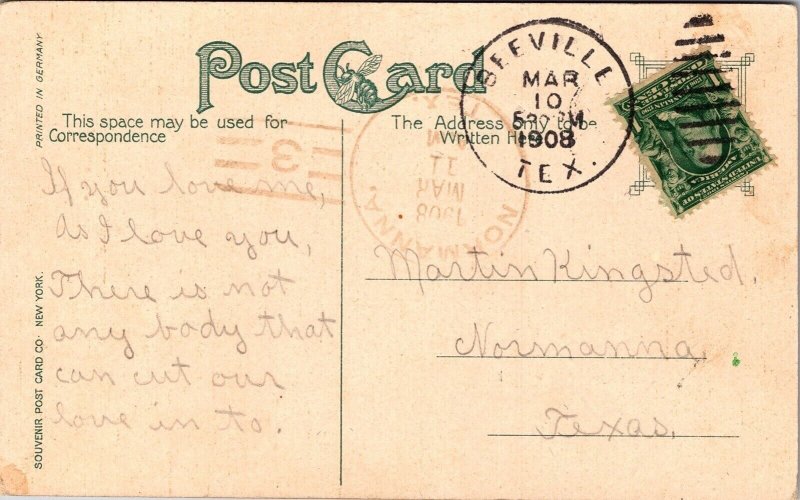 Post Card
This space may be used for
Correspondence
The Address only to be
Written He
PRINTED IN GERMANY
SOUVENIR POST CARD CO. NEW YORK.
BEEVILLE
MAR
10
1908
TEX.
NORMANNA,
MAR
11
1908
3
UNITED STATES OF
AMERICA
If you love me,
As I love you,
There is not
any body that
can cut our
love in to.
Martin Kingsted,
Normanna,
Texas,